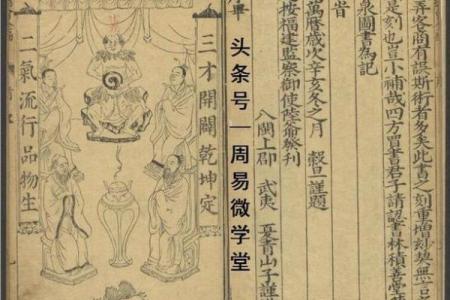 弄客商有誤斯術者多矣此書之刻重增刻
是刻也豈小補哉四方買書君子請認書林積善堂
泉圖書為記
旹
萬曆歲次辛亥冬之月 穀旦謹題
按福建監察御使陸
八閩上郡 武夷
头条号—周易微学堂
三才開闢乾坤定
二氣流行品物生